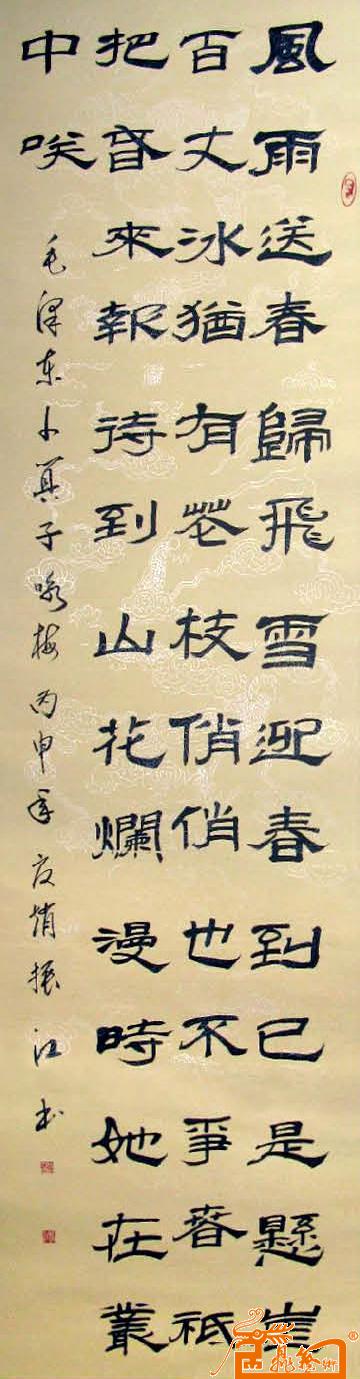 風雨送春歸飛雪迎春到已是懸崖
百丈冰猶有花枝俏俏也不爭春祗
把春來報待到山花爛漫時她在叢
中咲
毛泽东卜算子咏梅丙申年夏振江书